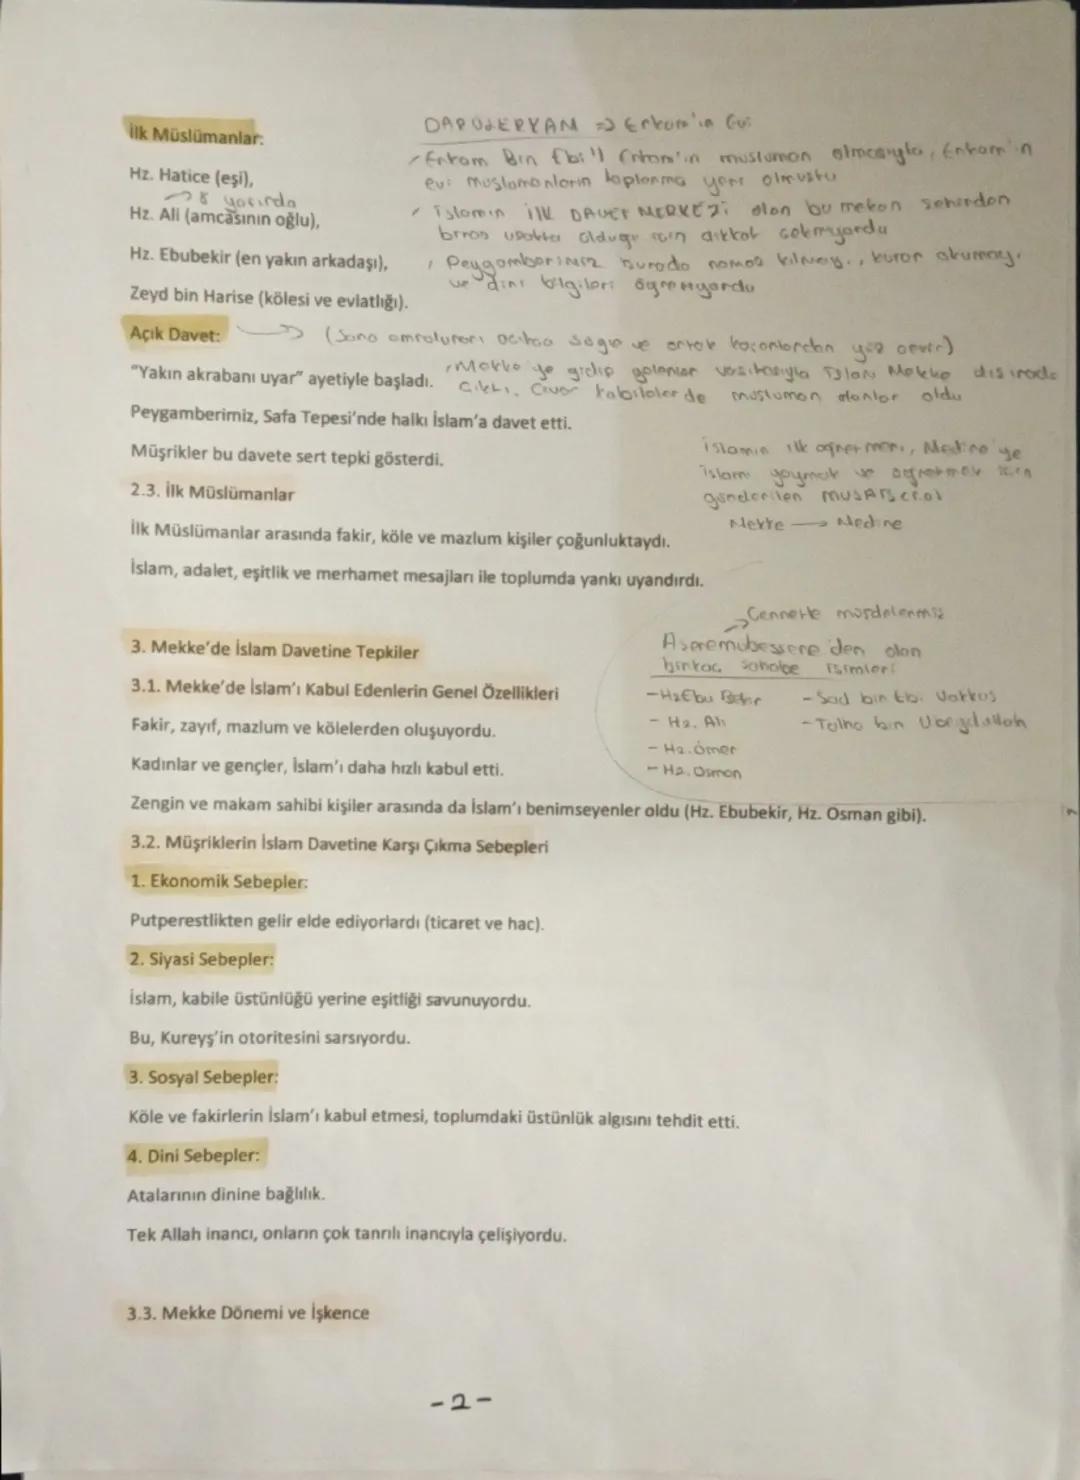 İlk Müslümanlar:
Hz. Hatice (eşi),
→ 8 yaşında
Hz. Ali (amcasının oğlu),
Hz. Ebubekir (en yakın arkadaşı),
Zeyd bin Harise (kölesi ve evlatlığı).
DARULERKAM => Erkam'ın Evi
Erkam Bin Ebi'l Erkam'ın musluman olmasıyla, Erkam'ın
evi muslumanların toplanma yeri olmustu
islamın iLK DAVET MERKEZi olan bu mekan sehirden
biraz uzakta oldugu icin dikkat cekmiyordu
Peygamberimiz burada namaz kılmayı, kuran okumayı
ve dini bilgileri ögretiyordu
Açık Davet: → (Sana emroluranı acıkca söyle ve ortak kosanlardan yüz cevir)
"Yakın akrabanı uyar" ayetiyle başladı.
Mekke'ye gidip gelenler vasıtasıyla islam Mekke dısınada
cıktı. Civar kabilelerde musluman olanlar oldu
Peygamberimiz, Safa Tepesi'nde halkı İslam'a davet etti.
Müşrikler bu davete sert tepki gösterdi.
islamın ilk ogretmeni, Medine'ye
islamı yaymak ve ogretmek icin
gönderilen MUSAB (r.a)
Mekke → Medine
2.3. İlk Müslümanlar
İlk Müslümanlar arasında fakir, köle ve mazlum kişiler çoğunluktaydı.
İslam, adalet, eşitlik ve merhamet mesajları ile toplumda yankı uyandırdı.
→ Cennetle müjdelenmis
Aşeremübessere'den olan
birkac sahabe isimleri
- Hz Ebu Bekir
- Hz. Ali
- Hz. ömer
- Hz. Osman
- Sad bin Ebi Vakkas
- Talha bin Ubeydullah
3. Mekke'de İslam Davetine Tepkiler
3.1. Mekke'de İslam'ı Kabul Edenlerin Genel Özellikleri
Fakir, zayıf, mazlum ve kölelerden oluşuyordu.
Kadınlar ve gençler, İslam'ı daha hızlı kabul etti.
Zengin ve makam sahibi kişiler arasında da İslam'ı benimseyenler oldu (Hz. Ebubekir, Hz. Osman gibi).
3.2. Müşriklerin İslam Davetine Karşı Çıkma Sebepleri
1. Ekonomik Sebepler:
Putperestlikten gelir elde ediyorlardı (ticaret ve hac).
2. Siyasi Sebepler:
İslam, kabile üstünlüğü yerine eşitliği savunuyordu.
Bu, Kureyş'in otoritesini sarsıyordu.
3. Sosyal Sebepler:
Köle ve fakirlerin İslam'ı kabul etmesi, toplumdaki üstünlük algısını tehdit etti.
4. Dini Sebepler:
Atalarının dinine bağlılık.
Tek Allah inancı, onların çok tanrılı inancıyla çelişiyordu.
3.3. Mekke Dönemi ve İşkence
-2-